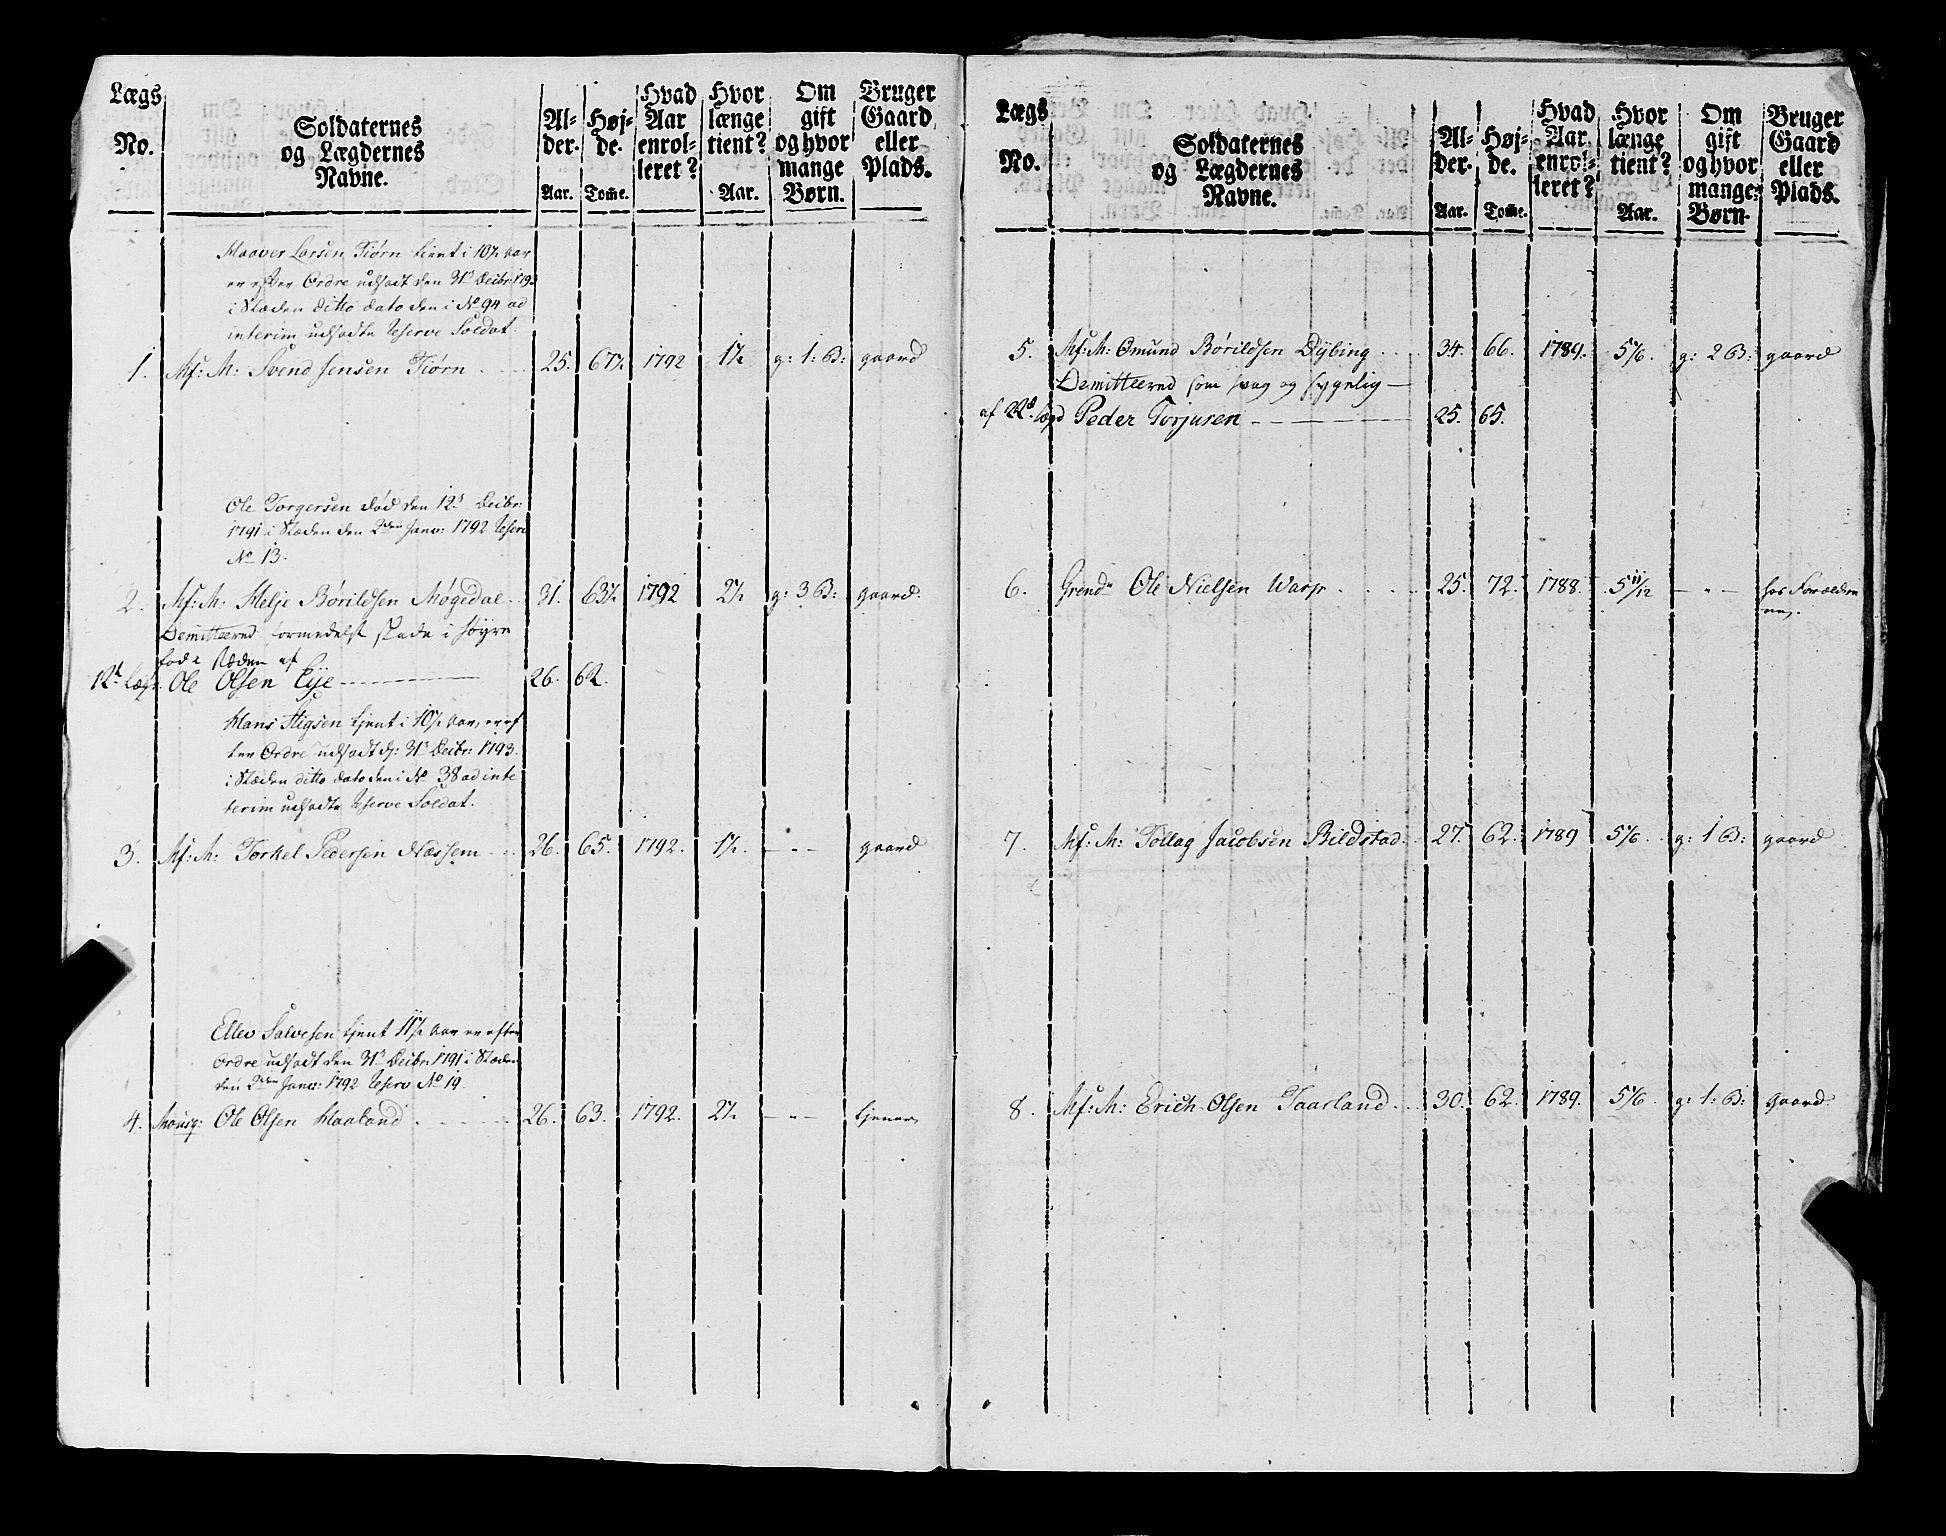 Lægs No. | Soldaternes og Lægdernes Navne. | Al-der. Aar. | Høj-de. Tome. | Hvad Aar enrol-leret? | Hvor længe tient? Aar. | Om gift og hvor mange Børn. | Bruger Gaard eller Plads.
Haaver Larsen Tiørn tient i 10½ aar
er efter Ordre udsadt den 31t Decbr: 1793
i Stæden ditto dato den i No 94 ad
interim udsadte Reserve Soldat.
1. Ms: M: Svend Jensen Tiørn | 25. | 67½ | 1792 | 1½ | g: 1: B: | gaard
Ole Torgersen død den 12t Decbr:
1791 i Stæden den 2den Janv: 1792 Reserv
No 13.
2. Ms: M: Helje Børildsen Møgedal | 31. | 63½ | 1792 | 2½ | g: 3 B: | gaard.
Demitteered formedelst skade i høyre
fod i stæden af
12t Lægd Ole Olsen Eye | 26. | 62.
Hans Stigsen tient i 10½ aar, er ef
ter Ordre udsadt d: 31t Decbr: 1793.
i Stæden ditto dato den i No 38 ad inte
terim udsadte Reserve Soldat.
3. Ms: M: Torkel Pedersen Næssem | 26. | 65. | 1792. | 1½. | - " - | gaard
Ellev Salvesen tient 11½ aar er efter
ordre udsadt den 31t Decbr: 1791 i Stæden
den 2den Janv: 1792 Reserv No 19.
4. Mousq: Ole Olsen Haaland | 26. | 63. | 1792. | 2½ | - " - | tjener
Lægs No. | Soldaternes og Lægdernes Navne. | Al-der. Aar. | Høj-de. Tome. | Hvad Aar enrol-leret? | Hvor længe tient? Aar. | Om gift og hvor mange Børn. | Bruger Gaard eller Plads.
5. Ms: M: Omund Børildsen Dybing | 34. | 66. | 1789. | 5 5/6. | g: 2 B: | gaard
Demitteered som svag og sygelig
af 22d Lægd Peder Torjusen | 25. | 65.
6. Grend: Ole Nielsen Warp | 25. | 72. | 1788. | 5 11/12 | - " - | hos Forældre
ne.
7. Ms: M: Tollag Jacobsen Bildstad | 27. | 62. | 1789 | 5 5/6. | g: 1 B: | gaard
8. Ms: M: Erich Olsen Taarland | 30. | 62. | 1789. | 5 5/6. | g: 1: B: | gaard.